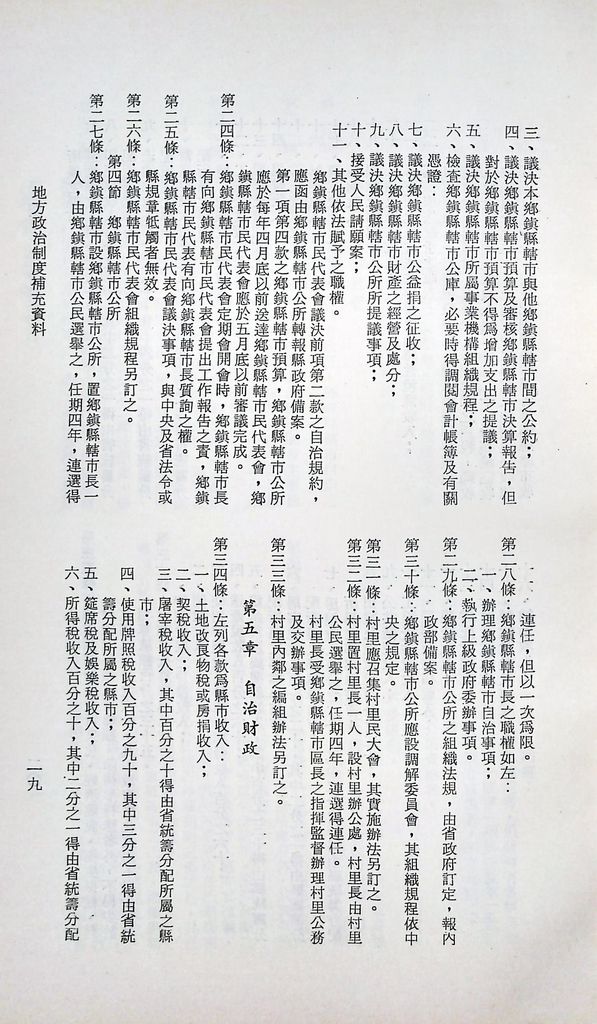 三、議決本鄉鎮縣轄市與他鄉鎮縣轄市間之公約；
四、議決鄉鎮縣轄市預算及審核鄉鎮縣轄市決算報告，但
對於鄉鎮縣轄市預算不得爲增加支出之提議；
五、議決鄉鎮縣轄市所屬事業機構組織規程；
六、檢查鄉鎮縣轄市公庫，必要時得調閱會計帳簿及有關
憑證：
七、議決鄉鎮縣轄市公益捐之征收；
八、議決鄉鎮縣轄市財產之經營及處分；
九、議決鄉鎮縣轄市公所所提議事項；
十、接受人民請願案；
十一、其他依法賦予之職權。
鄉鎮縣轄市民代表會議決前項第二款之自治規約，
應函由鄉鎮縣轄市公所轉報縣政府備案。
第一項第四款之鄉鎮縣轄市預算，鄉鎮縣轄市公所
應於每年四月底以前送達鄉鎮縣轄市民代表會，鄉
鎮縣轄市民代表會應於五月底以前審議完成。
第二四條：鄉鎮縣轄市民代表會定期會開會時，鄉鎮縣轄市長
有向鄉鎮縣轄市民代表會提出工作報告之責，鄉鎮
縣轄市民代表有向鄉鎮縣轄市長質詢之權。
第二五條：鄉鎮縣轄市民代表會議決事項，與中央及省法令或
縣規章牴觸者無效。
第二六條：鄉鎮縣轄市民代表會組織規程另訂之。
第四節　鄉鎮縣轄市公所
第二七條：鄉鎮縣轄市設鄉鎮縣轄市公所，置鄉鎮縣轄市長一
人，由鄉鎮縣轄市公民選舉之，任期四年，連選得
連任，但以一次爲限。
第二八條：鄉鎮縣轄市長之職權如左：
一、辦理鄉鎮縣轄市自治事項；
二、執行上級政府委辦事項。
第二九條：鄉鎮縣轄市公所之組織法規，由省政府訂定，報內
政部備案。
第三十條：鄉鎮縣轄市公所應設調解委員會，其組織規程依中
央之規定。
第三一條：村里應召集村里民大會，其實施辦法另訂之。
第三二條：村里置村里長一人，設村里辦公處，村里長由村里
公民選舉之，任期四年，連選得連任。
村里長受鄉鎮縣轄市區長之指揮監督辦理村里公務
及交辦事項。
第三三條：村里內鄰之編組辦法另訂之。
第五章　自治財政
第三四條：左列各款爲縣市收入：
一、土地改良物稅或房捐收入；
二、契稅收入；
三、屠宰稅收入，其中百分之十得由省統籌分配所屬之縣
市；
四、使用牌照稅收入百分之九十，其中三分之一得由省統
籌分配所屬之縣市；
五、筵席稅及娛樂稅收入；
六、所得稅收入百分之十，其中二分之一得由省統籌分配
地方政治制度補充資料
一九